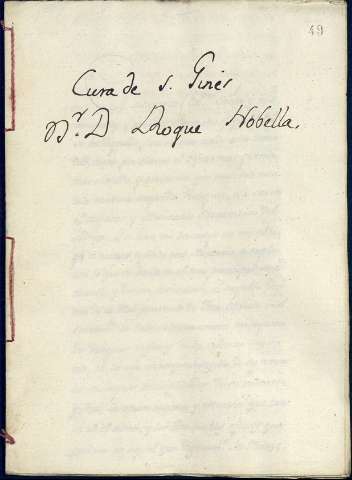 49
Cura de S. Ginés
Dr. D Roque Nobella.